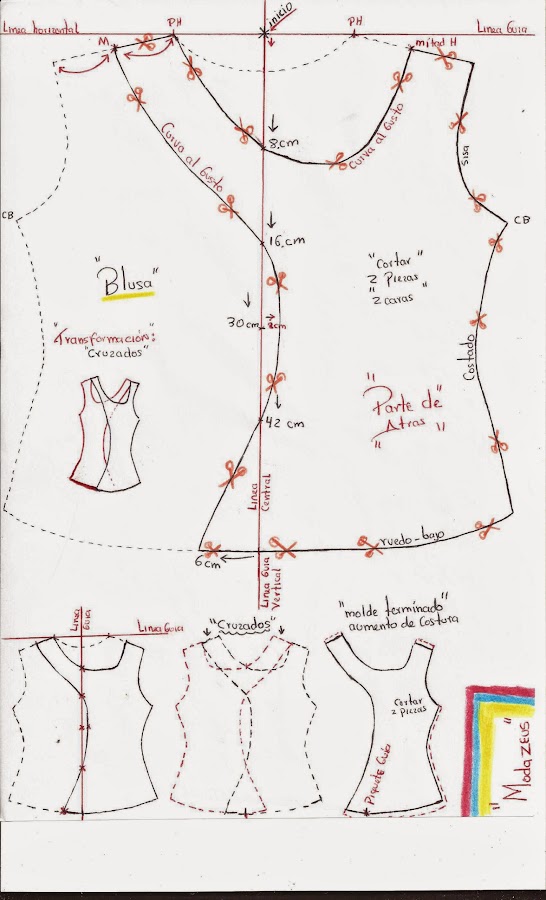 inicio
Linea horizontal
PH
PH
Linea Guia
M
mitad H
8.cm
Curva al Gusto
Curva al Gusto
sisa
CB
CB
16.cm
"Blusa"
"Cortar"
2 Piezas
"2 caras"
30 cm
8cm
"Transformación:
"Cruzados"
Costado
"Parte de
Atras"
42 cm
Linea
Central
6 cm
ruedo-bajo
Linea Guia
Vertical
Linea
Guia
Linea Guia
"Cruzados"
"molde terminado"
aumento de Costura
Cortar
2 Piezas
Piquete Guia
"ModaZEUS"